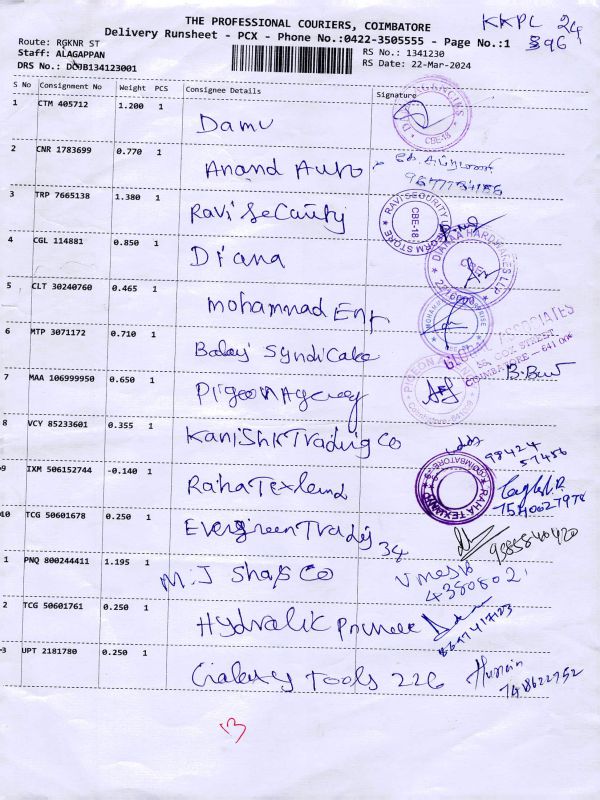 THE PROFESSIONAL COURIERS, COIMBATORE
KKPL 24
Delivery Runsheet - PCX - Phone No.:0422-3505555 - Page No.:1
396
Route: RGKNR ST
RS No.: 1341230
Staff: ALAGAPPAN
RS Date: 22-Mar-2024
DRS No.: DCJB134123001
S No Consignment No Weight PCS Consignee Details Signature
1 CTM 405712 1.200 1 Damu
CBE-18
2 CNR 1783699 0.770 1 Anand Auto
3 TRP 7665138 1.380 1 Ravi Security
RAVI SECURITY FORM STORE CBE-18
4 CGL 114881 0.850 1 Diana
5 CLT 30240760 0.465 1 Mohammad Ent
6 MTP 3071172 0.710 1 Balaji Syndicate
COIMBATORE - 641 004
7 MAA 106999950 0.650 1 Pigeon Agency
B.
8 VCY 85233601 0.355 1 Kanishk Trading Co
98424
57456
9 IXM 506152744 -0.140 1 Raha Texland
COIMBATORE RAHA TEXLAND
7540627978
10 TCG 50601678 0.250 1 Evergreen Trading 34
1 PNQ 800244411 1.195 1 M.J Shafs Co
Umesh
2 TCG 50601761 0.250 1 Hydralic
3 UPT 2181780 0.250 1 Galaxy Tools 226
Hussain
13